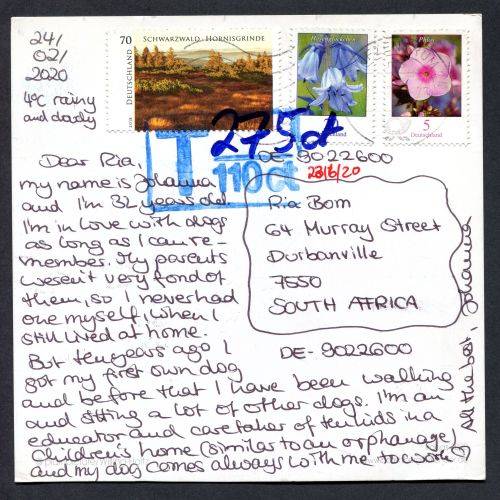 24/
02/
2020
4°C rainy
and cloudy
70 SCHWARZWALD · HORNISGRINDE
DEUTSCHLAND
Deutschland
Phlox
5
Deutschland
T 275ct
110ct
DE-9022600
23/6/20
Dear Ria,
my name is Johanna
and I'm 32 years old.
I'm in love with dogs
as long as I can re-
member. My parents
weren't very fond of
them, so I never had
one myself, when I
still lived at home.
But ten years ago I
got my first own dog
and before that I have been walking
and sitting a lot of other dogs. I'm an
educator and caretaker of ten kids in a
children's home (similar to an orphanage)
and my dog comes always with me to work ♡
All the best, Johanna
Ria Bom
64 Murray Street
Durbanville
7550
SOUTH AFRICA
DE-9022600